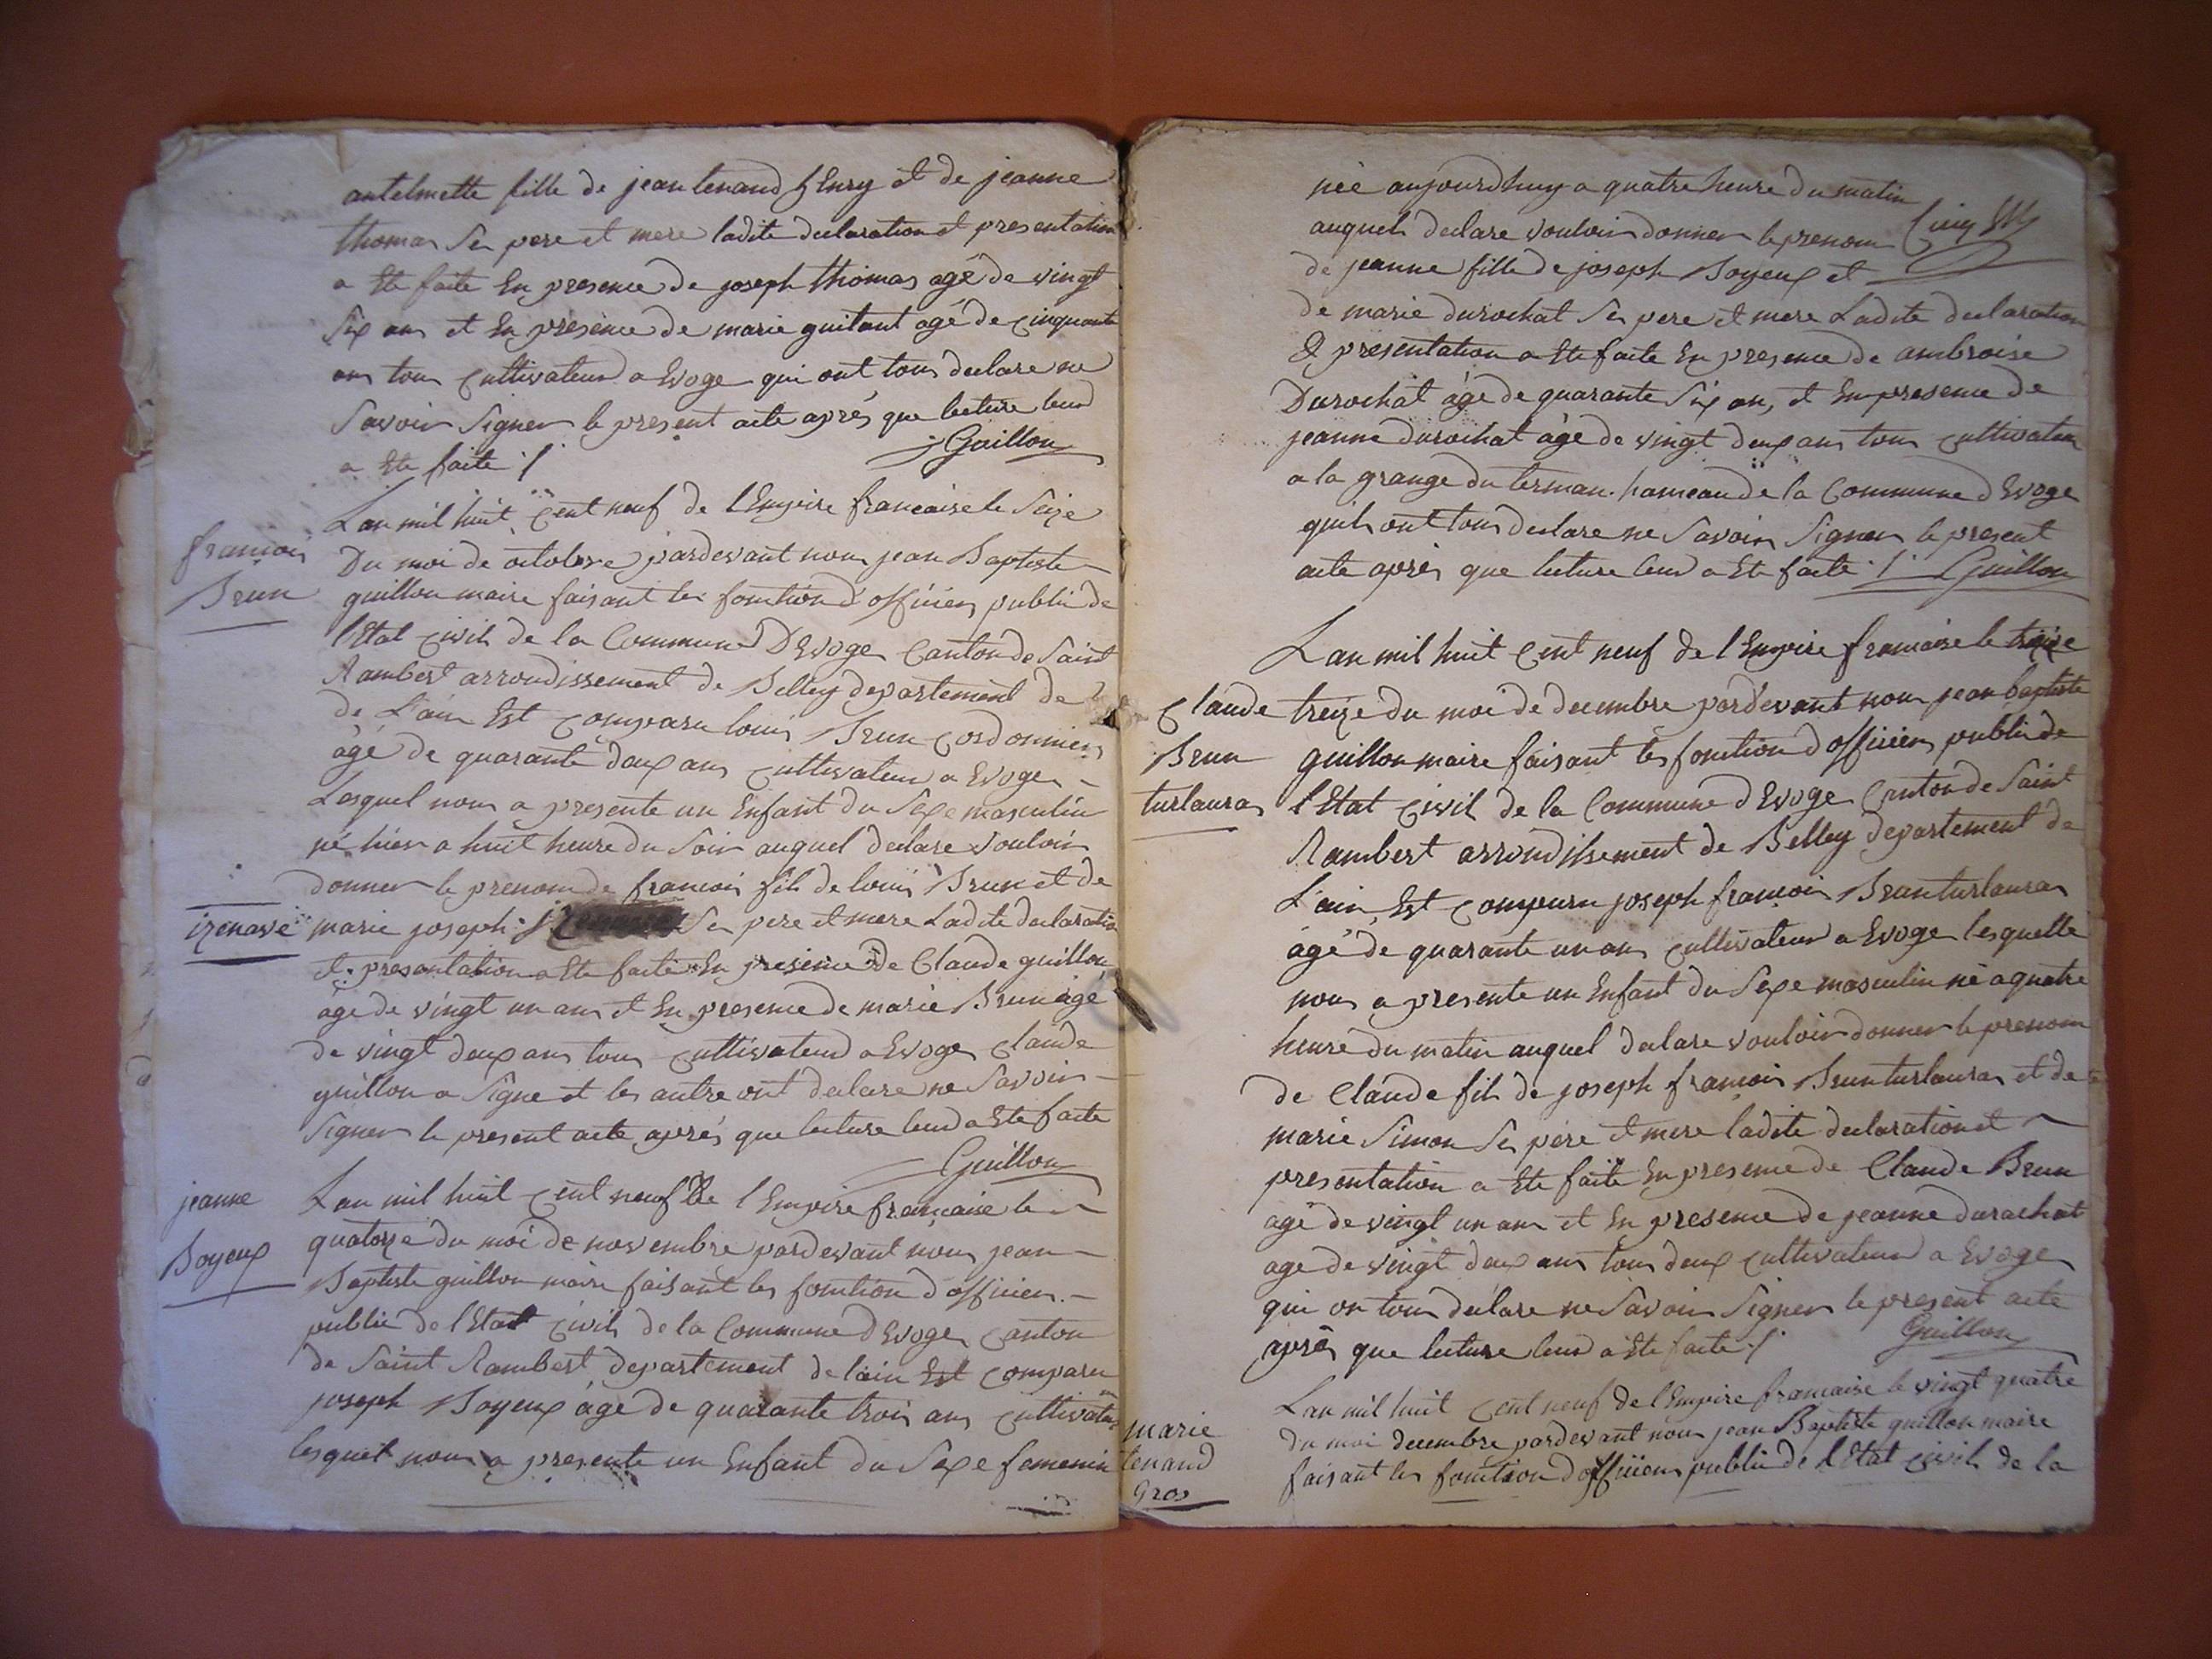 antelmette fille de jean tenand henry et de jeanne
thomas Ses pere et mere ladite declaration et presentation
a Ete faite En presence de joseph thomas agé de vingt
Six ans et En presence de marie guitant agé de cinquante
ans tous cultivateur a Evoge qui ont tous declare ne
Savoir Signer le present acte aprés que lecture leur
a Ete faite ./. Guillon
françois
Brun
L'an mil huit Cent neuf de l'Empire francaise le Seize
Du moi de octobre pardevant nous jean Baptiste
guillon maire faisant les fonction d'officier public de
l'Etat Civil de la Commune D'Evoge Canton de Saint
Rambert arrondissement de Belley departement de
de L'ain Est Comparu louis Brun Cordonnier
âgé de quarante deux ans Cultivateur a Evoge
Lesquel nous a presente un Enfant du Sexe masculin
né hier a huit heure du Soir auquel declare vouloir
donner le prenom de françois fils de louis Brun et de
irenave
marie joseph Ses pere et mere Ladite declaration
et presentation a Ete faite En presence de Claude guillon
âge de vingt un ans et En presence de marie Brun âgé
de vingt deux ans tous Cultivateur a Evoge Claude
guillon a Signe et les autre ont declare ne Savoir
Signer le present acte aprés que lecture leur a Ete faite
Guillon
jeanne
Boyeux
L'an mil huit Cent neuf de l'Empire française le
quatorze du moi de novembre pardevant nous jean
Baptiste guillon maire faisant les fonction d'officier
public de l'Etat Civil de la Commune d'Evoge Canton
de Saint Rambert departement de l'ain Est Comparu
joseph Boyeux âge de quarante trois ans Cultivateur
lesquel nous a presente un Enfant du Sexe femenin
née aujourdhuy a quatre heure du matin
auquel declare vouloir donner le prenom
de jeanne fille de joseph Boyeux et
de marie durochat Ses pere et mere Ladite declaration
& presentation a Ete faite En presence de ambroise
Durochat âge de quarante Six ans, et En presence de
jeanne durochat âge de vingt deux ans tous Cultivateur
a la grange du terman hameau de la Commune d'Evoge
quils ont tous declare ne Savoir Signer le present
acte aprés que lecture leur a Ete faite ./. Guillon
L'an mil huit Cent neuf de l'Empire francaise le treize
Claude
Brun
turlauras
treize du moi de decembre pardevant nous jean baptiste
guillon maire faisant les fonction d'officier public de
l'Etat Civil de la Commune d'Evoge Canton de Saint
Rambert arrondissement de Belley departement de
L'ain, Est Comparu joseph françois Brun turlauras
âgé de quarante un ans Cultivateur a Evoge lesquelle
nous a presente un Enfant du Sexe masculin né a quatre
heure du matin auquel declare vouloir donner le prenom
de Claude fils de joseph françois Brun turlauras et de
marie Simon Ses pére et mere ladite declaration et
presentation a Ete faite En presence de Claude Brun
agé de vingt un ans et En presence de jeanne durachat
age de vingt deux ans tous deux Cultivateur a Evoge
qui on tous declare ne Savoir Signer le present acte
aprés que lecture leur a Ete faite ./. Guillon
marie
tenand
Gros
L'an mil huit Cent neuf de l'Empire francaise le vingt quatre
du moi decembre pardevant nous jean Baptiste guillon maire
faisant les fonction d'officier public de l'Etat Civil de la